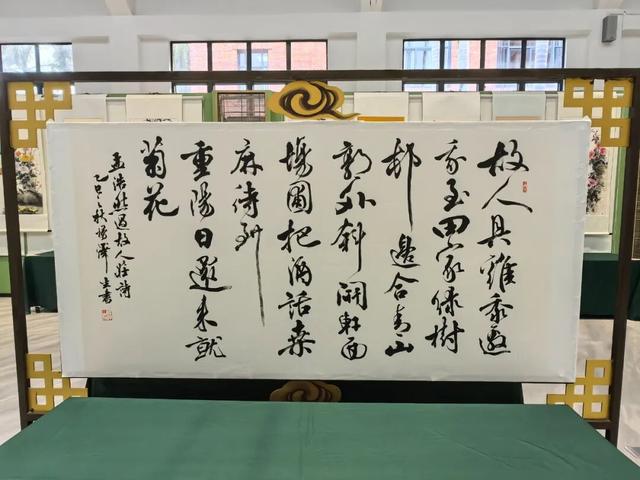 故人具雞黍邀
我至田家綠樹
邨邊合青山
郭外斜開軒面
場圃把酒話桑
麻待到
重陽日還來就
菊花
孟浩然過故人莊詩
乙巳之秋楊澤生書